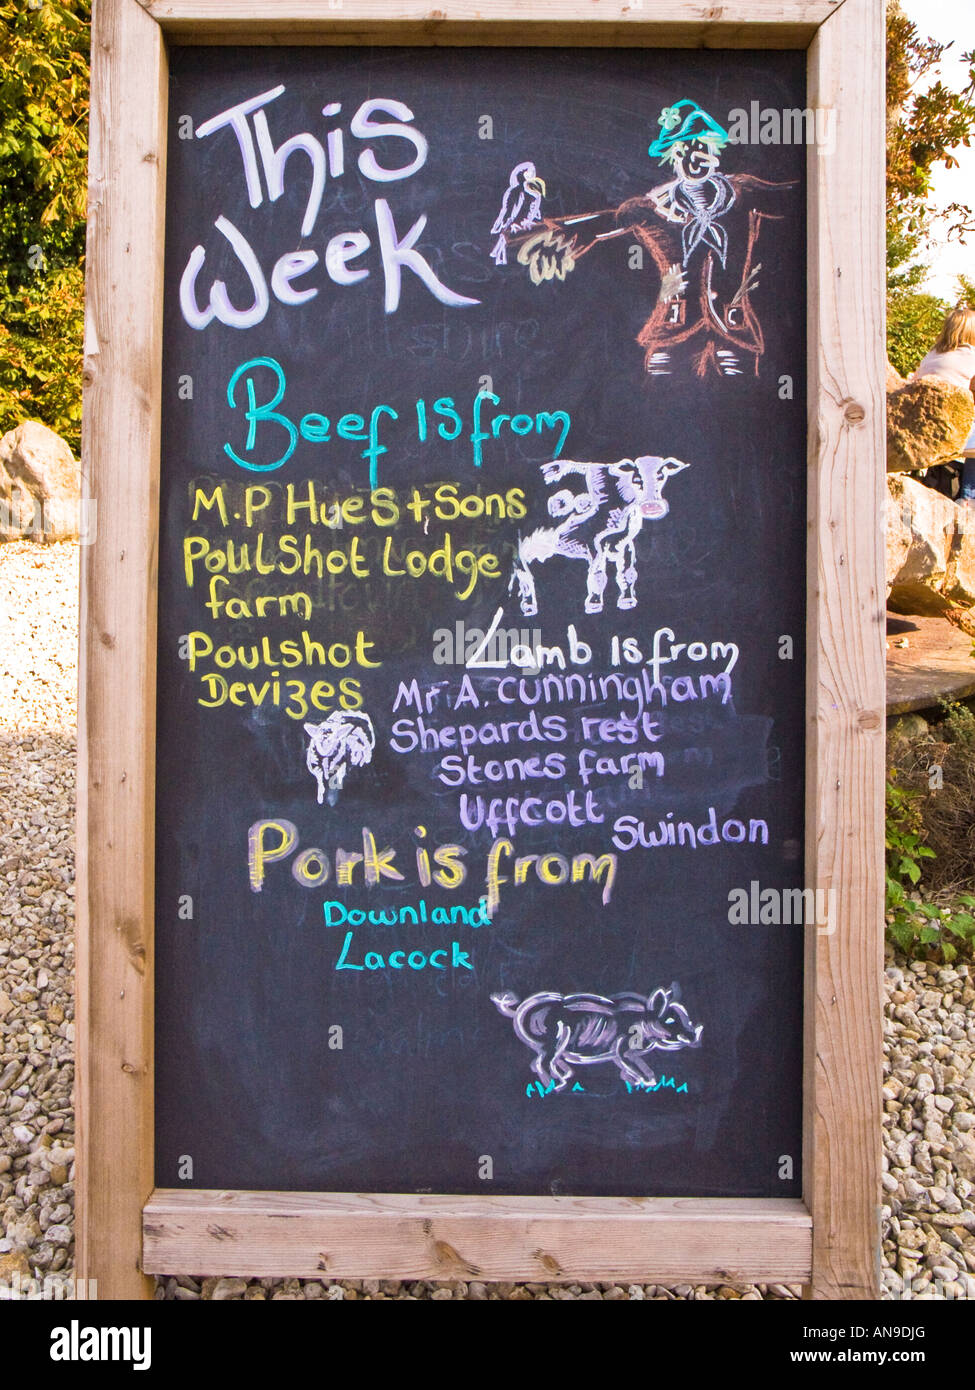 This
Week
J C
Beef is from
M.P Hues + Sons
Poulshot Lodge
farm
Poulshot
Devizes
Lamb is from
Mr A. Cunningham
Shepards rest
Stones farm
Uffcott
Swindon
Pork is from
Downland
Lacock
alamy
Image ID: AN9DJG
www.alamy.com